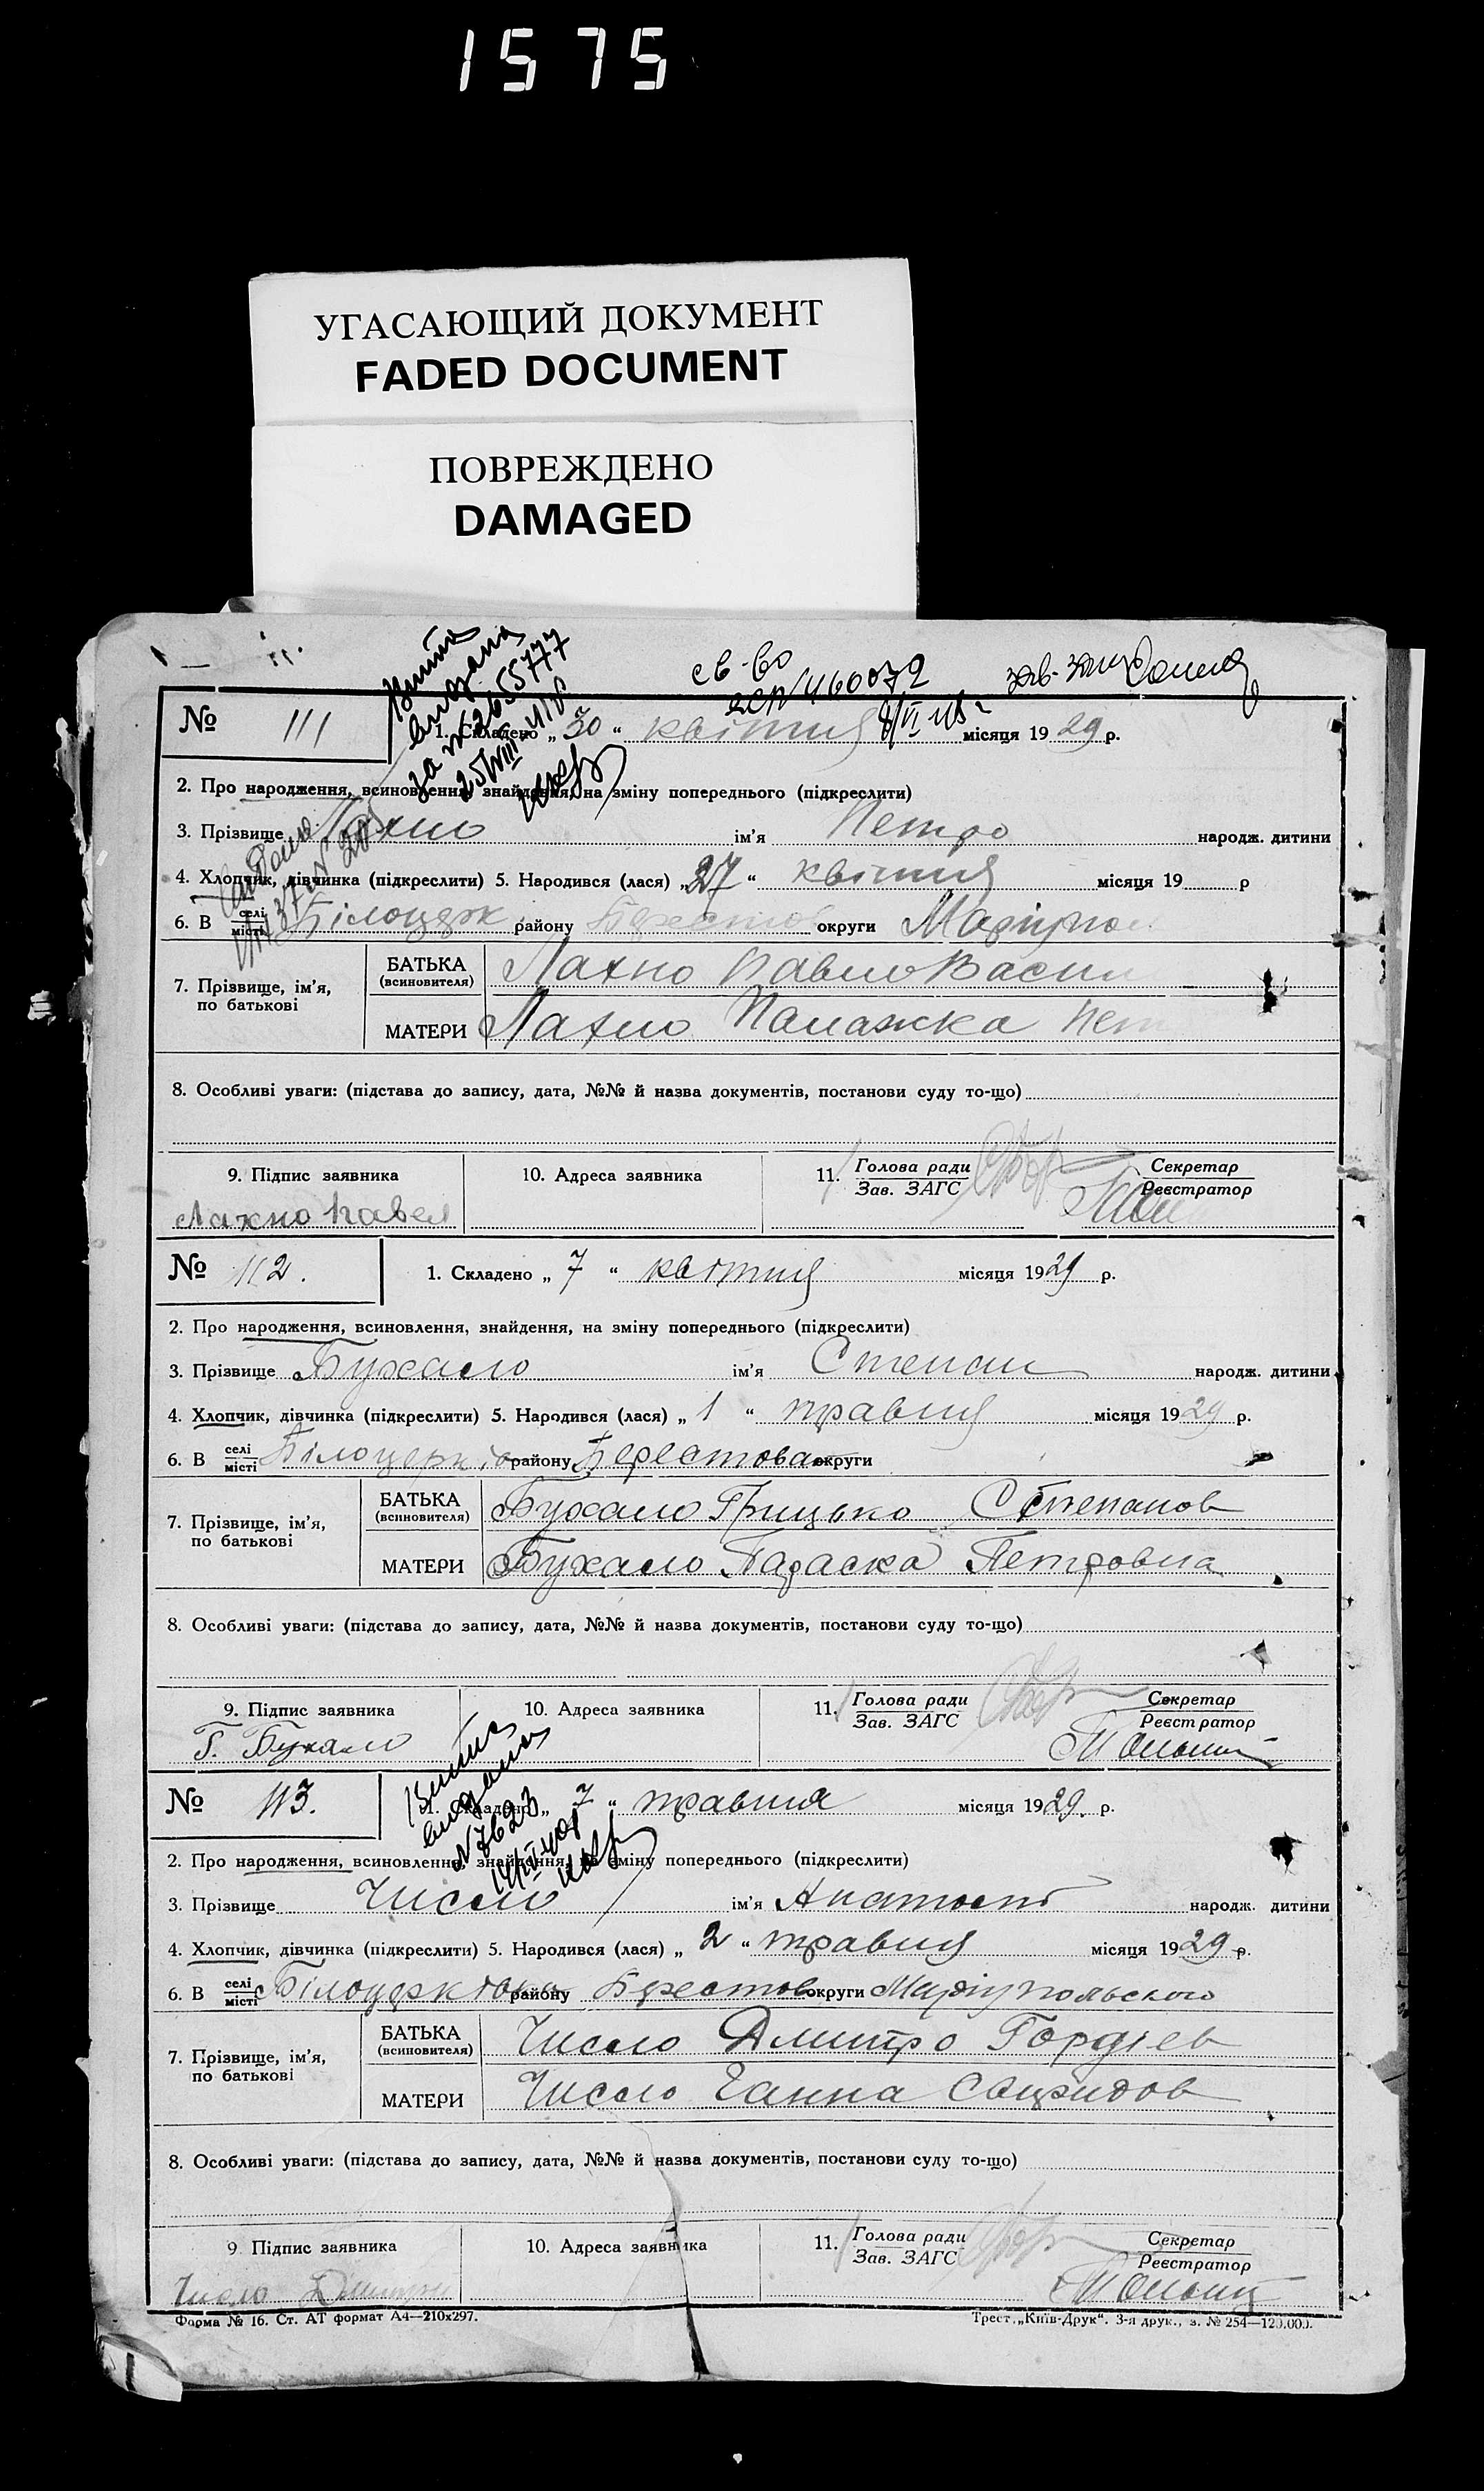 1575
УГАСАЮЩИЙ ДОКУМЕНТ
FADED DOCUMENT
ПОВРЕЖДЕНО
DAMAGED
св-во
460072
№ 111
1. Складено „ 30 “ квітня місяця 19 29 р.
2. Про народження, всиновлення, знайдення, на зміну попереднього (підкреслити)
3. Прізвище Лахно ім'я Петро народж. дитини
4. Хлопчик, дівчинка (підкреслити) 5. Народився (лася) „ 27 “ квітня місяця 19 р
6. В селі місті Білоцерк району Берестов округи Маріупол
7. Прізвище, ім'я, по батькові
БАТЬКА (всиновителя) Лахно Павло Васил
МАТЕРИ Лахно Палажка Пет
8. Особливі уваги: (підстава до запису, дата, №№ й назва документів, постанови суду то-що)
9. Підпис заявника 10. Адреса заявника 11. Голова ради Зав. ЗАГС Секретар Реєстратор
Лахно Павел
№ 112. 1. Складено „ 7 “ квітня місяця 1929 р.
2. Про народження, всиновлення, знайдення, на зміну попереднього (підкреслити)
3. Прізвище Бухало ім'я Степан народж. дитини
4. Хлопчик, дівчинка (підкреслити) 5. Народився (лася) „ 1 “ травня місяця 1929 р.
6. В селі місті Білоцерків району Берестова округи
7. Прізвище, ім'я, по батькові
БАТЬКА (всиновителя) Бухало Грицько Степанов
МАТЕРИ Бухало Параска Петровна
8. Особливі уваги: (підстава до запису, дата, №№ й назва документів, постанови суду то-що)
9. Підпис заявника 10. Адреса заявника 11. Голова ради Зав. ЗАГС Секретар Реєстратор
Г. Бухало
Витяг
видана
№ 7623
№ 113. 1. Складено „ 7 “ травня місяця 1929. р.
2. Про народження, всиновлення, знайдення, на зміну попереднього (підкреслити)
3. Прізвище Число ім'я Анатолій народж. дитини
4. Хлопчик, дівчинка (підкреслити) 5. Народився (лася) „ 2 “ травня місяця 1929 р.
6. В селі місті Білоцерківка району Берестов округи Маріупольського
7. Прізвище, ім'я, по батькові
БАТЬКА (всиновителя) Число Дмитро Гордіев
МАТЕРИ Число Ганна Свиридов
8. Особливі уваги: (підстава до запису, дата, №№ й назва документів, постанови суду то-що)
9. Підпис заявника 10. Адреса заявника 11. Голова ради Зав. ЗАГС Секретар Реєстратор
Число Дмитро
Форма № 16. Ст. АТ формат А4—210x297. Трест „Київ-Друк“. 3-я друк., з. № 254—120.000.